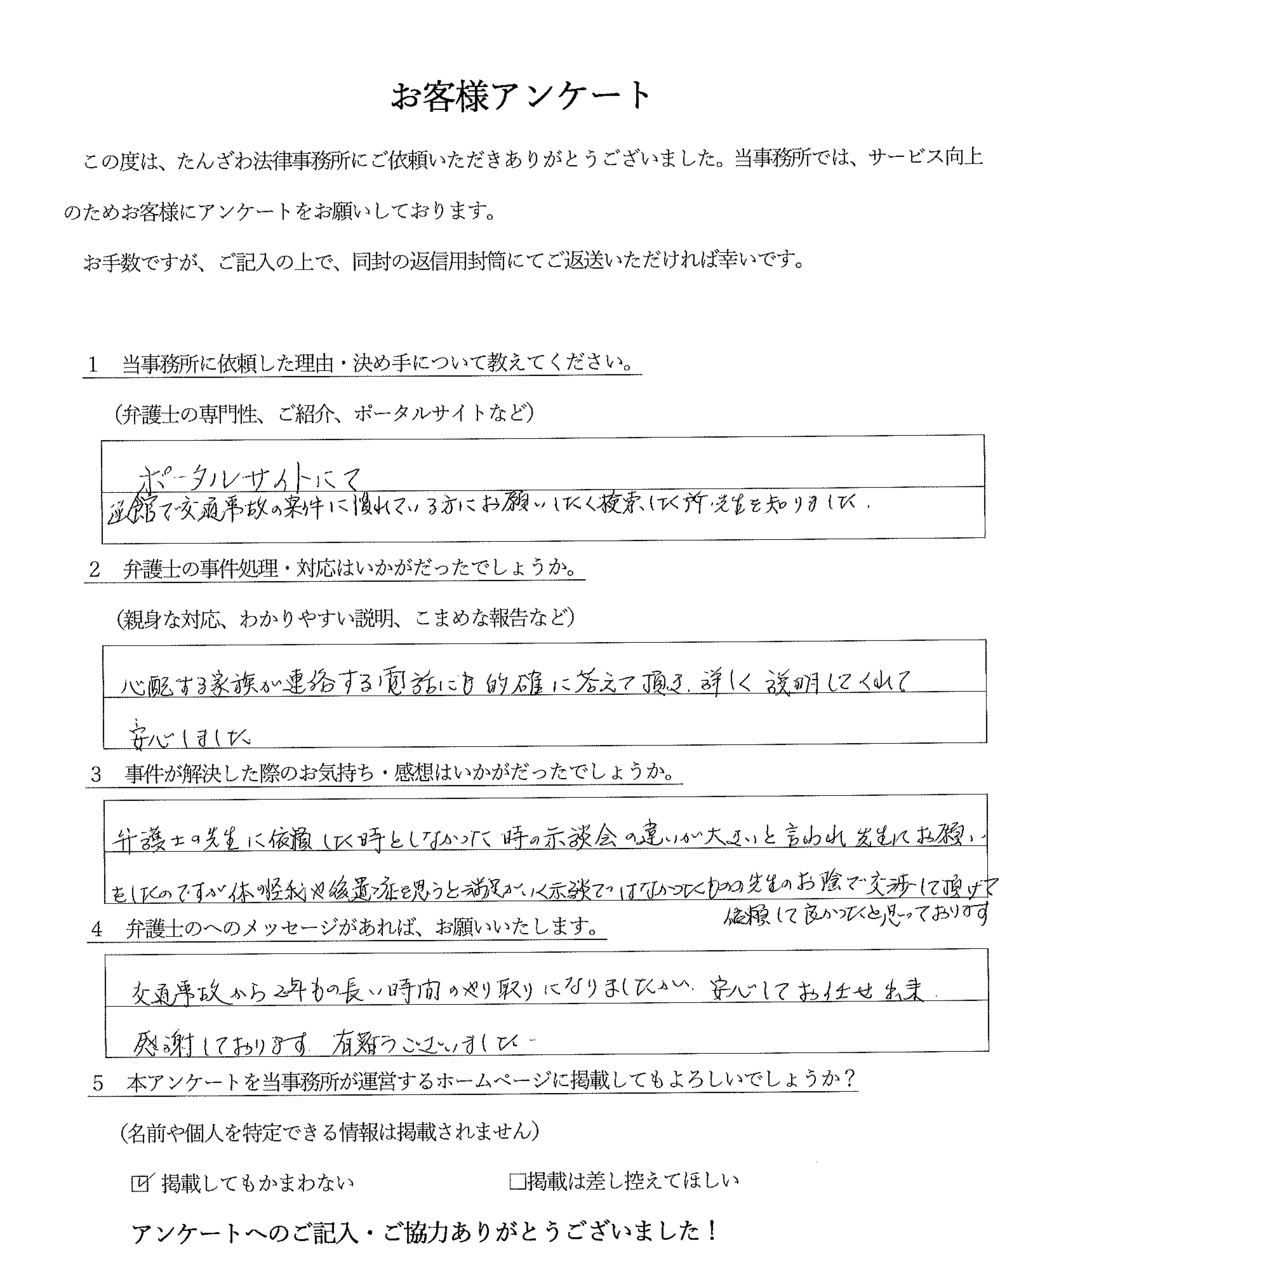 お客様アンケート
この度は、たんざわ法律事務所にご依頼いただきありがとうございました。当事務所では、サービス向上
のためお客様にアンケートをお願いしております。
お手数ですが、ご記入の上で、同封の返信用封筒にてご返送いただければ幸いです。
1　当事務所に依頼した理由・決め手について教えてください。
（弁護士の専門性、ご紹介、ポータルサイトなど）
ポータルサイトにて
函館で交通事故の案件に慣れている方にお願いしたく検索した所、先生を知りました.
2　弁護士の事件処理・対応はいかがだったでしょうか。
（親身な対応、わかりやすい説明、こまめな報告など）
心配する家族が連絡する電話にも的確に答えて頂き、詳しく説明してくれて
安心しました
3　事件が解決した際のお気持ち・感想はいかがだったでしょうか。
弁護士の先生に依頼した時としなかった時の示談金の違いが大きいと言われ先生にお願い
をしたのですが体の怪我や後遺症を思うと満足がいく示談ではなかったものの先生のお陰で交渉して頂けて
依頼して良かったと思っております
4　弁護士のへのメッセージがあれば、お願いいたします。
交通事故から2年もの長い時間のやり取りになりましたが、安心してお任せ出来
感謝しております 有難うございました
5　本アンケートを当事務所が運営するホームページに掲載してもよろしいでしょうか？
（名前や個人を特定できる情報は掲載されません）
☑ 掲載してもかまわない　□掲載は差し控えてほしい
アンケートへのご記入・ご協力ありがとうございました！